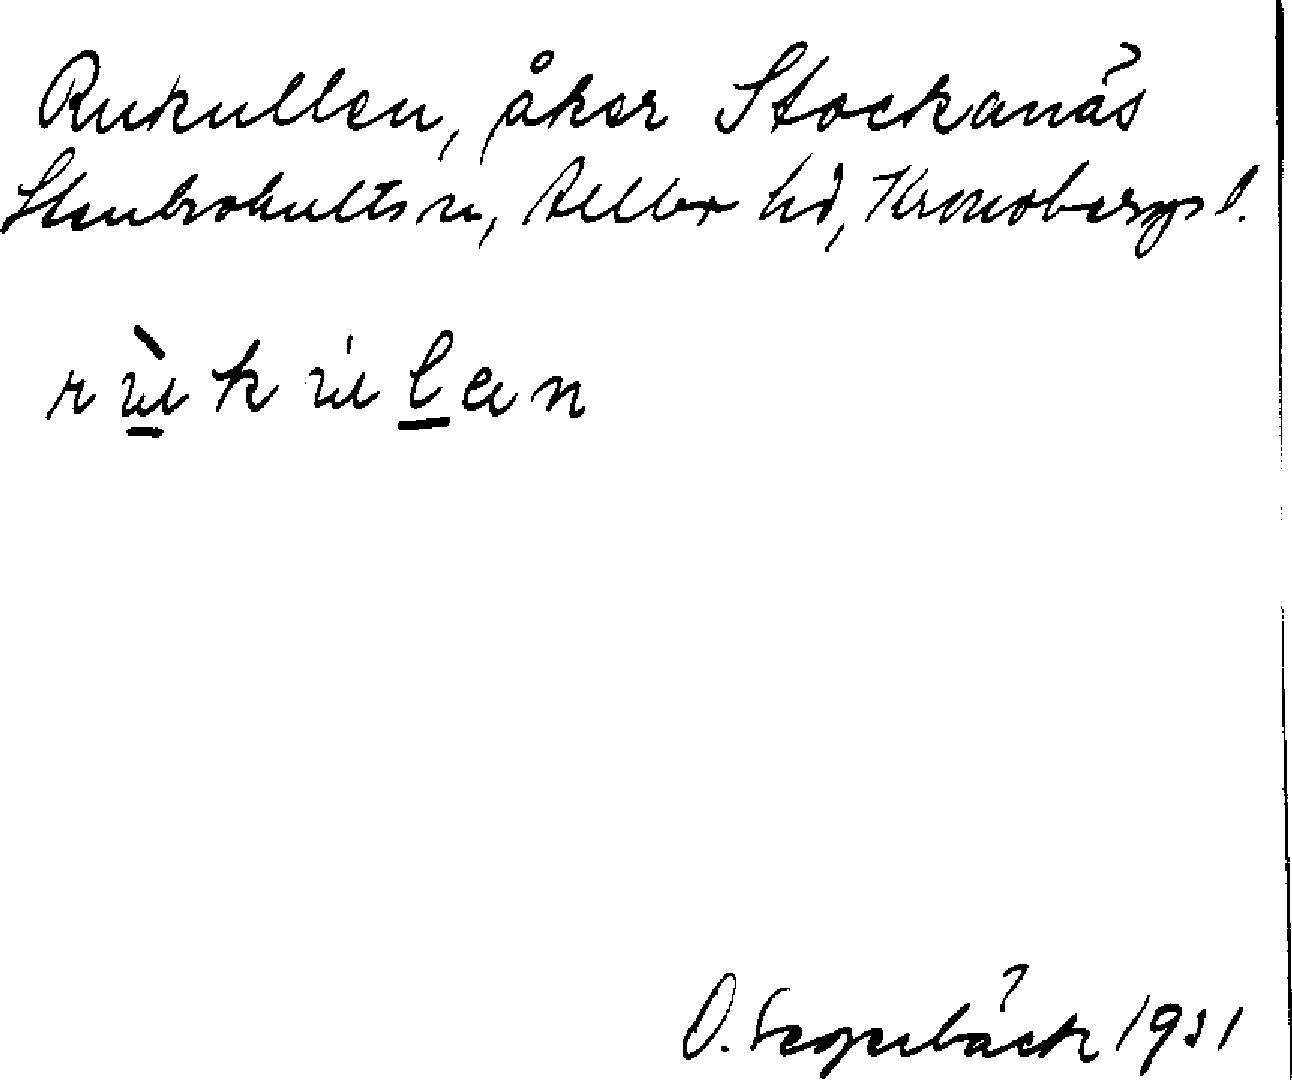 Rukullen, åker Stockanäs
Stenbrohults sn, Allbo hd, Kronobergs l.
rùkulan
O. Segerbäck 1931